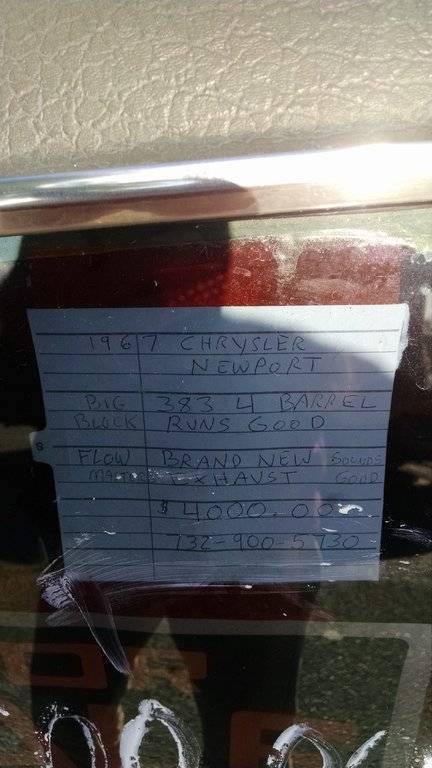 1967 CHRYSLER
NEWPORT
BIG 383 4 BARREL
BLOCK RUNS GOOD
FLOW BRAND NEW SOUNDS
MASTER EXHAUST GOOD
$4000.00
732-900-5730